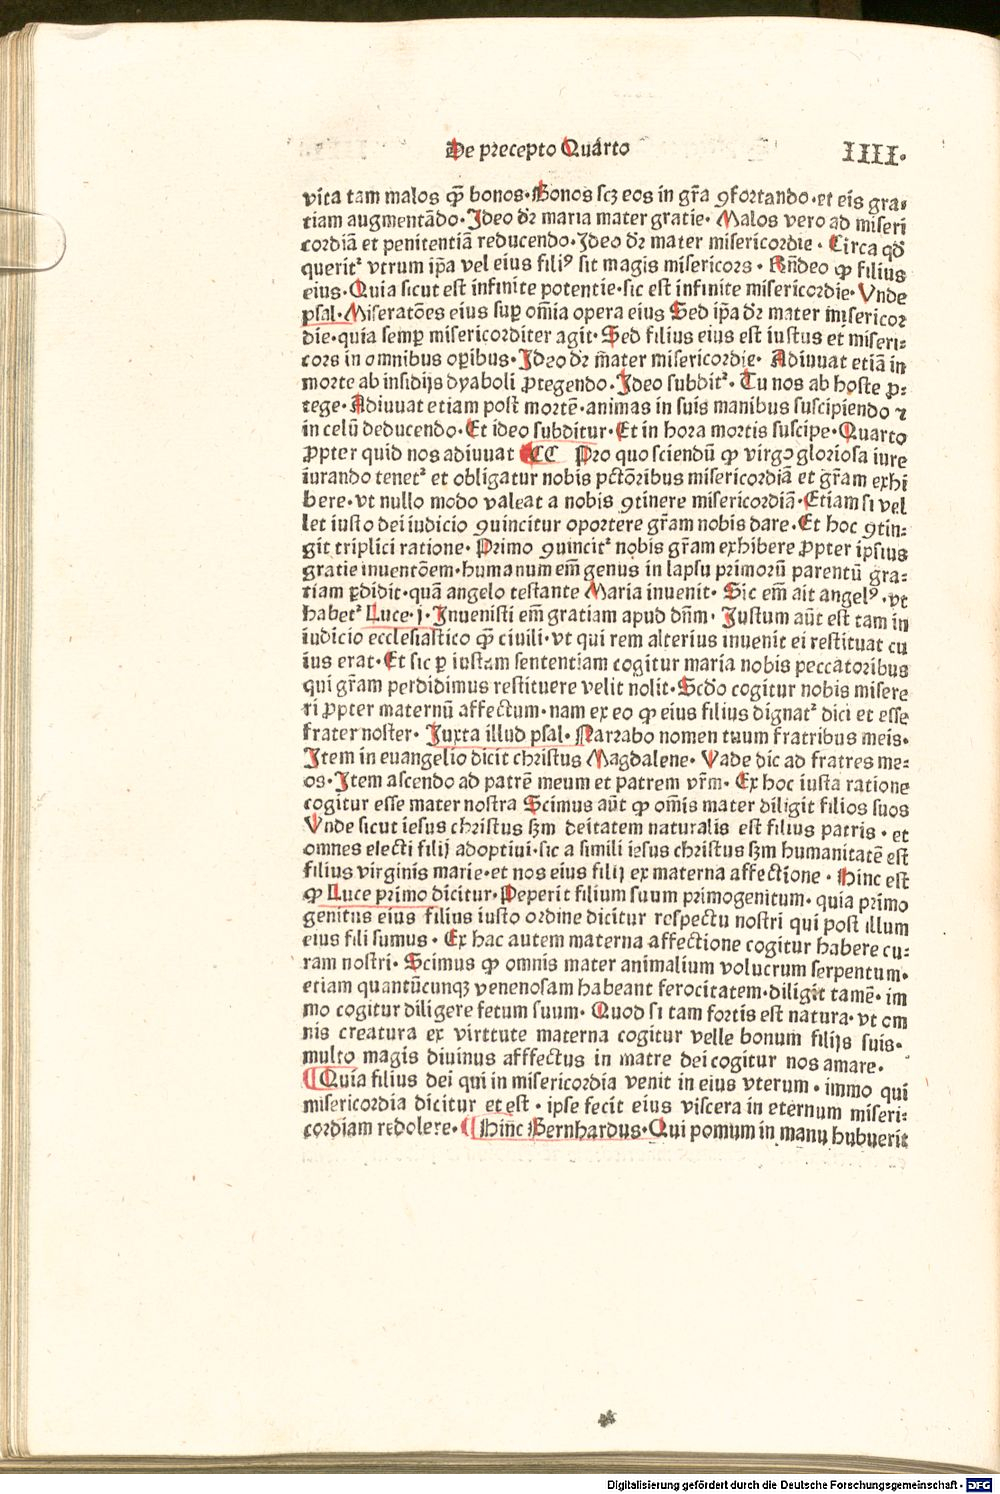 De precepto Quarto
IIII.
vita tam malos qͣ̄ bonos·Bonos scꝫ eos in gr̄a ꝯfortando·et eis gra⸗
tiam augmentādo·Ideo dr̄ maria mater gratie· Malos vero ad miseri
cordiā et penitentiā reducendo·Ideo dr̄ mater misericordie · Circa qd̄
querit᷑ vtrum ip̄a vel eius filiꝰ sit magis misericors · Rn̄deo ꝙ filius
eius·Quia sicut est infinite potentie·sic est infinite misericordie·Vnde
psal·Miseratōes eius suꝑ om̄ia opera eius Sed ip̄a dr̄ mater misericor
die·quia semꝑ misericorditer agit·Sed filius eius est iustus et miseri⸗
cors in omnibus oꝑibus·Ideo dr̄ m̄ater misericordie· Adiuuat etiā in
morte ab insidijs dyaboli ꝓtegendo·Ideo subdit᷑·Tu nos ab hoste ꝓ⸗
tege·Adiuuat etiam post mortē·animas in suis manibus suscipiendo ⁊
in celū deducendo·Et ideo subditur·Et in hora mortis suscipe·Quarto
ꝓpter quid nos adiuuat CC Pro quo sciendū ꝙ virgo gloriosa iure
iurando tenet᷑ et obligatur nobis pctōribus misericordiā et gr̄am exhi
bere·vt nullo modo valeat a nobis ꝯtinere misericordiā·Etiam si vel
let iusto dei iudicio ꝯuincitur oportere gr̄am nobis dare·Et hoc ꝯtin⸗
git triplici ratione· Primo ꝯuincit᷑ nobis gr̄am exhibere ꝓpter ipsius
gratie inuentōem·humanum em̄ genus in lapsu primorū parentū gra⸗
tiam ꝑdidit·quā angelo testante Maria inuenit· Sic em̄ ait angelꝰ·vt
habet᷑ Luce·j·Inuenisti em̄ gratiam apud dn̄m· Iustum aūt est tam in
iudicio ecclesiastico qͣ̄ ciuili·vt qui rem alterius inuenit ei restituat cu
ius erat·Et sic ꝑ iustam sententiam cogitur maria nobis peccatoribus
qui gr̄am perdidimus restituere velit nolit·Scd̄o cogitur nobis misere
ri ꝓpter maternū affectum·nam ex eo ꝙ eius filius dignat᷑ dici et esse
frater noster· Iuxta illud psal·Narrabo nomen tuum fratribus meis·
Item in euangelio dicit christus Magdalene· Vade dic ad fratres me⸗
os·Item ascendo ad patrē meum et patrem vr̄m· Ex hoc iusta ratione
cogitur esse mater nostra Scimus aūt ꝙ om̄is mater diligit filios suos
Vnde sicut iesus christus sꝫm deitatem naturalis est filius patris · et
omnes electi filij adoptiui·sic a simili iesus christus sꝫm humanitatē est
filius virginis marie·et nos eius filij ex materna affectione · Hinc est
ꝙ Luce primo dicitur·Peperit filium suum primogenitum· quia primo
genitus eius filius iusto ordine dicitur respectu nostri qui post illum
eius fili sumus· Ex hac autem materna affectione cogitur habere cu⸗
ram nostri· Scimus ꝙ omnis mater animalium volucrum serpentum·
etiam quantūcunqꝫ venenosam habeant ferocitatem·diligit tamē·im
mo cogitur diligere fetum suum· Quod si tam fortis est natura·vt om
nis creatura ex virttute materna cogitur velle bonum filijs suis·
multo magis diuinus afffectus in matre dei cogitur nos amare·
Quia filius dei qui in misericordia venit in eius vterum · immo qui
misericordia dicitur et est · ipse fecit eius viscera in eternum miseri⸗
cordiam redolere· Hinc Bernhardus·Qui pomum in manu hubuerit
Digitalisierung gefördert durch die Deutsche Forschungsgemeinschaft - DFG